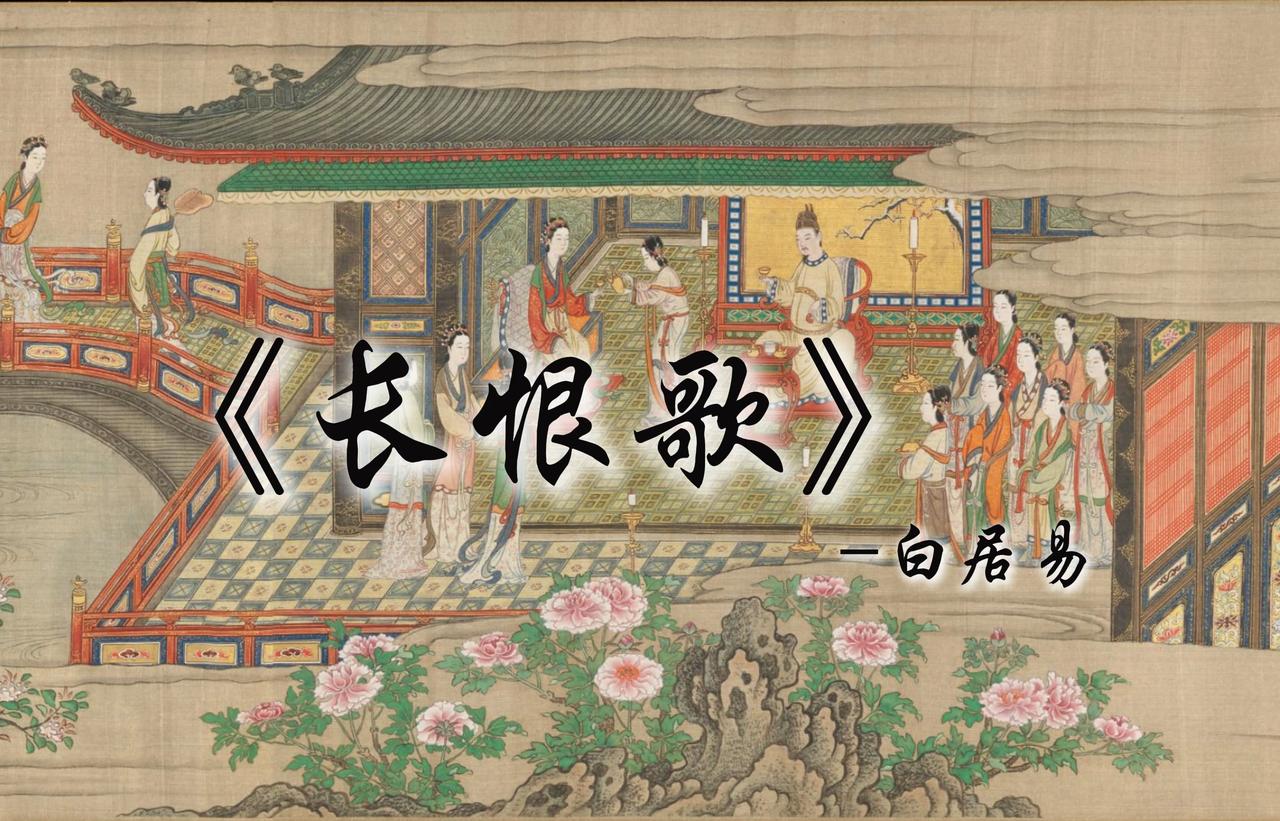 《长恨歌》
—白居易